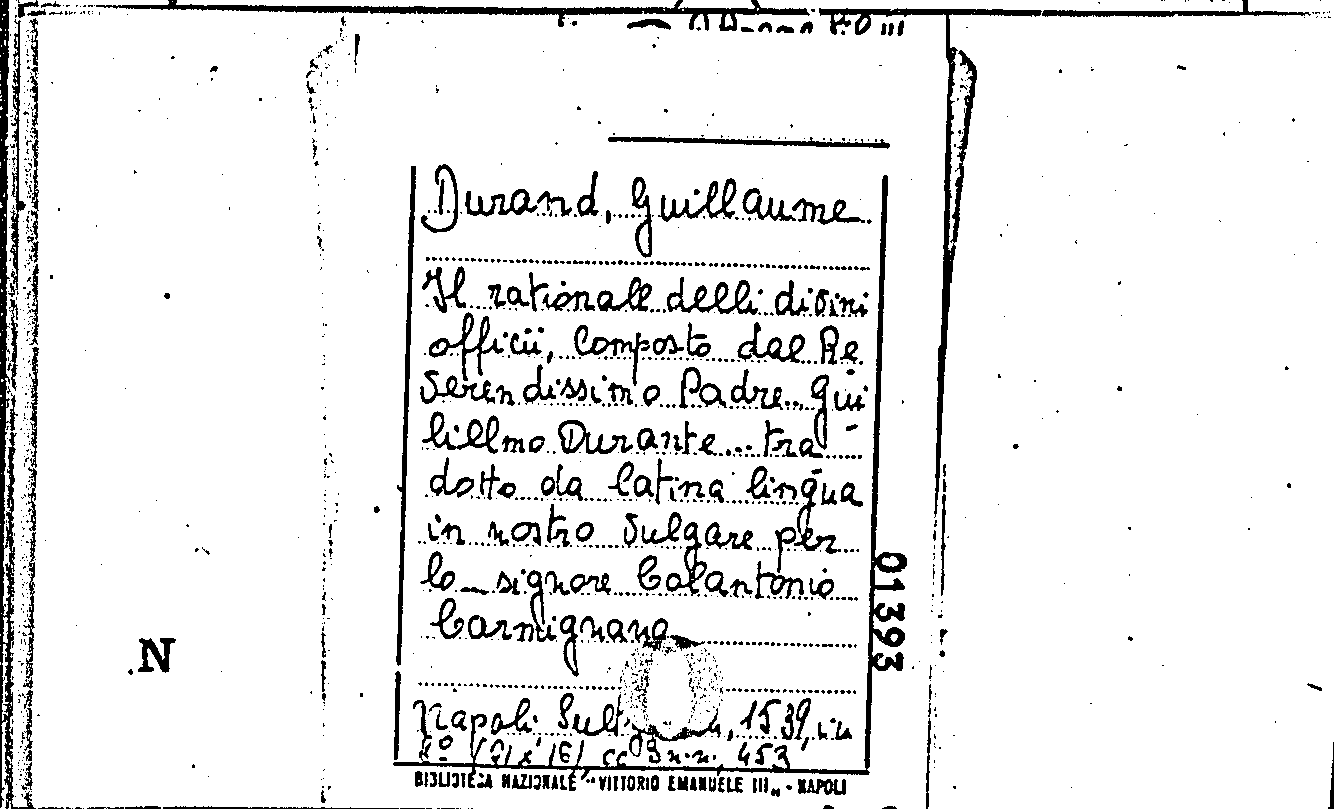 Durand, Guillaume
Il rationale delli divini
officii, composto dal Re
verendissimo Padre.. Gui
lillmo Durante... tra
dotto da latina lingua
in nostro vulgare per
lo signore Colantonio
Carmignano
Napoli 1539, in
453
BIBLIOTECA NAZIONALE "VITTORIO EMANUELE III" - NAPOLI
01393
N